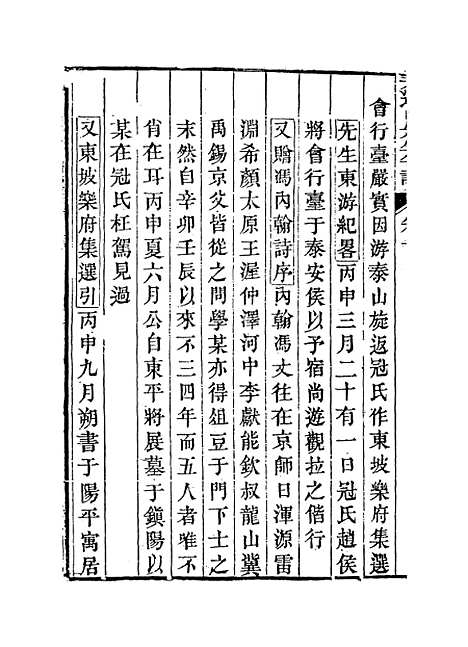 會行臺嚴實因游泰山旋返冠氏作東坡樂府集選
先生東游紀畧丙申三月二十有一日冠氏趙侯
將會行臺于泰安侯以予宿尚遊觀拉之偕行
又贈馮內翰詩序內翰馮丈往在京師日渾源雷
淵希顏太原王渥仲澤河中李獻能欽叔龍山冀
禹錫京父皆從之問學某亦得俎豆于門下士之
末然自辛卯壬辰以來不三四年而五人者唯不
肖在耳丙申夏六月公自東平將展墓于鎮陽以
某在冠氏枉駕見過
又東坡樂府集選引丙申九月朔書于陽平寓居